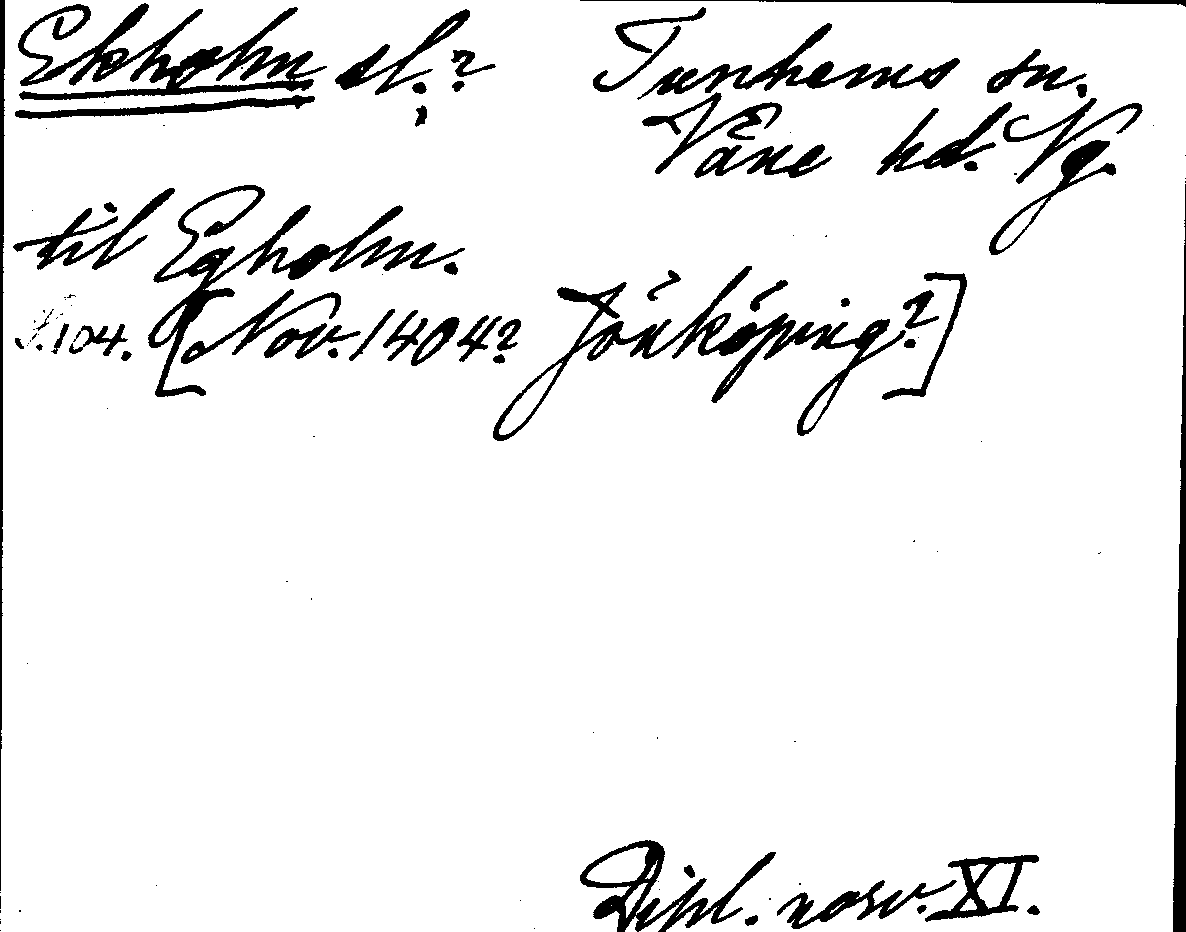 Ekholm sl.? Tunhems sn.
Väne hd. Vg.
til Egholm.
S. 104. [Nov. 1404? Jönköping?]
Dipl. norv. XI.